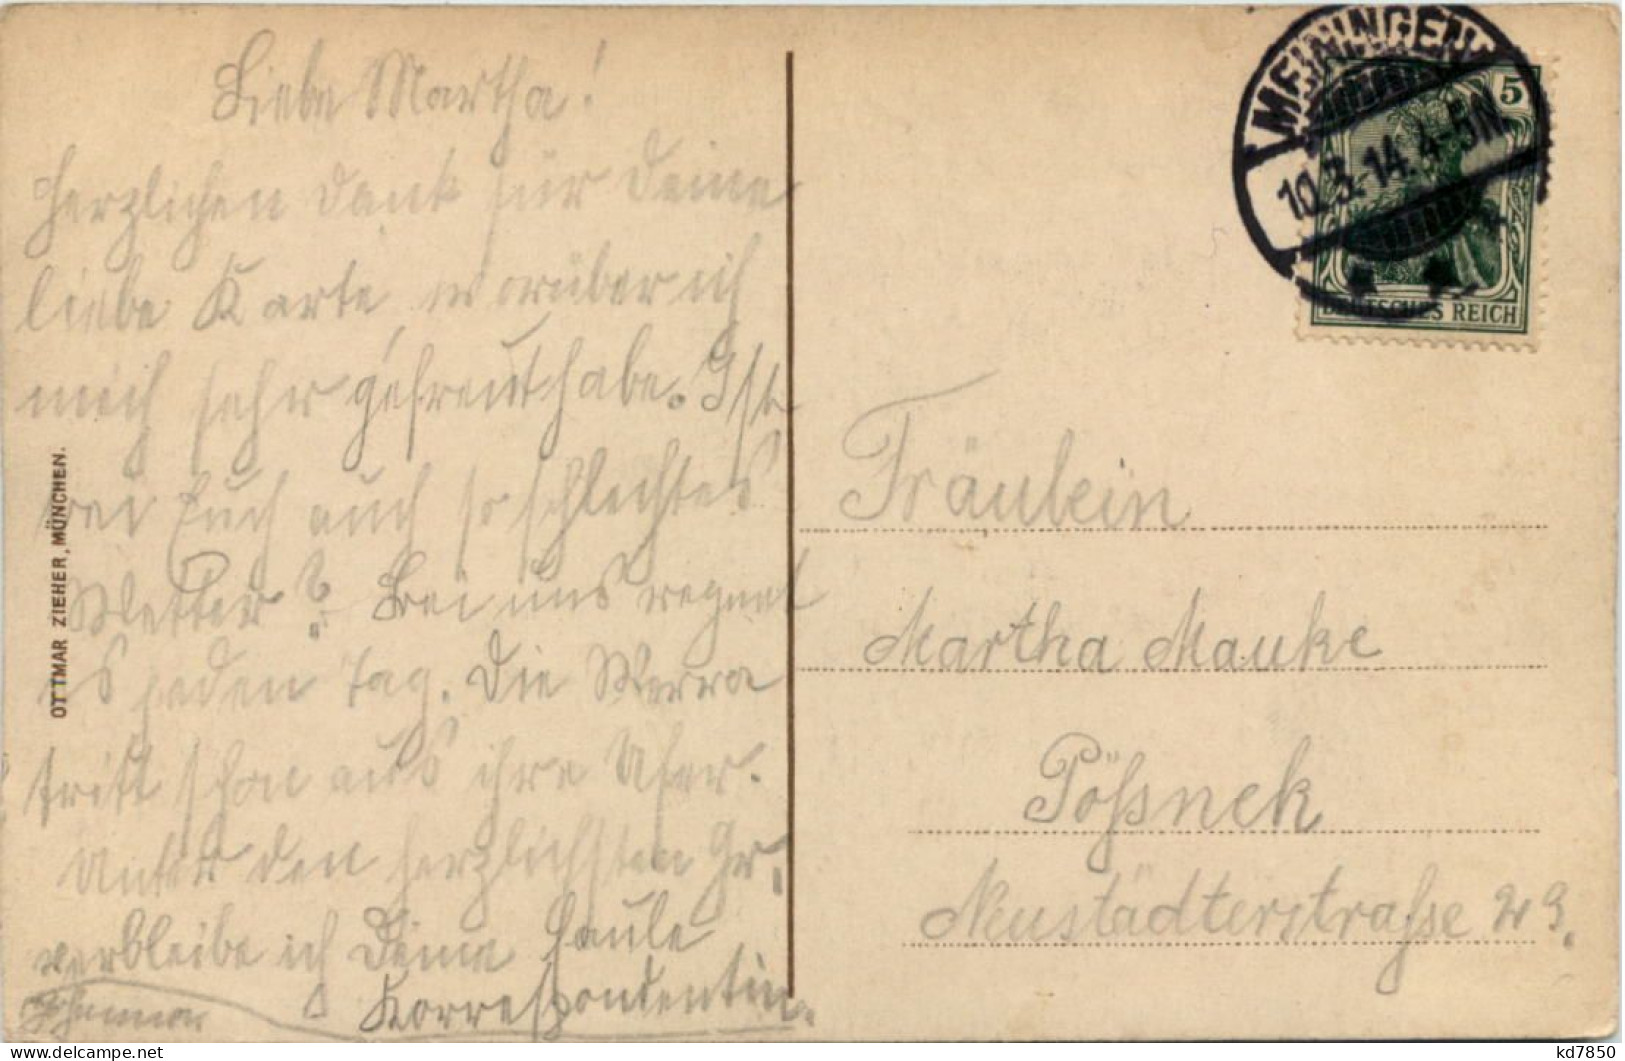 Liebe Martha!
Herzlichen Dank für Deine
liebe Karte worüber ich
mich sehr gefreut habe. Ist
bei Euch auch so schlechtes
Wetter? Bei uns regnet
es jeden Tag. Die Werra
tritt schon aus ihre Ufer.
Unter den herzlichsten Gr.
verbleibe ich Deine faule
Korrespondentin.
Johanna
OTTMAR ZIEHER, MÜNCHEN.
MEININGEN
10.3.14. 4-5N.
5
DEUTSCHES REICH
Fräulein
Martha Mauke
Pößneck
Neustädterstraße 29.
kd7850